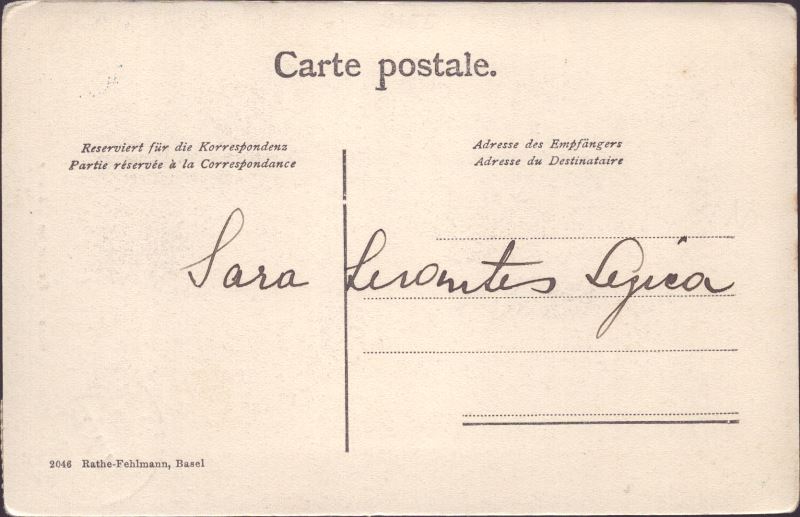 Carte postale.
Reserviert für die Korrespondenz
Partie réservée à la Correspondance
Adresse des Empfängers
Adresse du Destinataire
Sara
2046 Rathe-Fehlmann, Basel